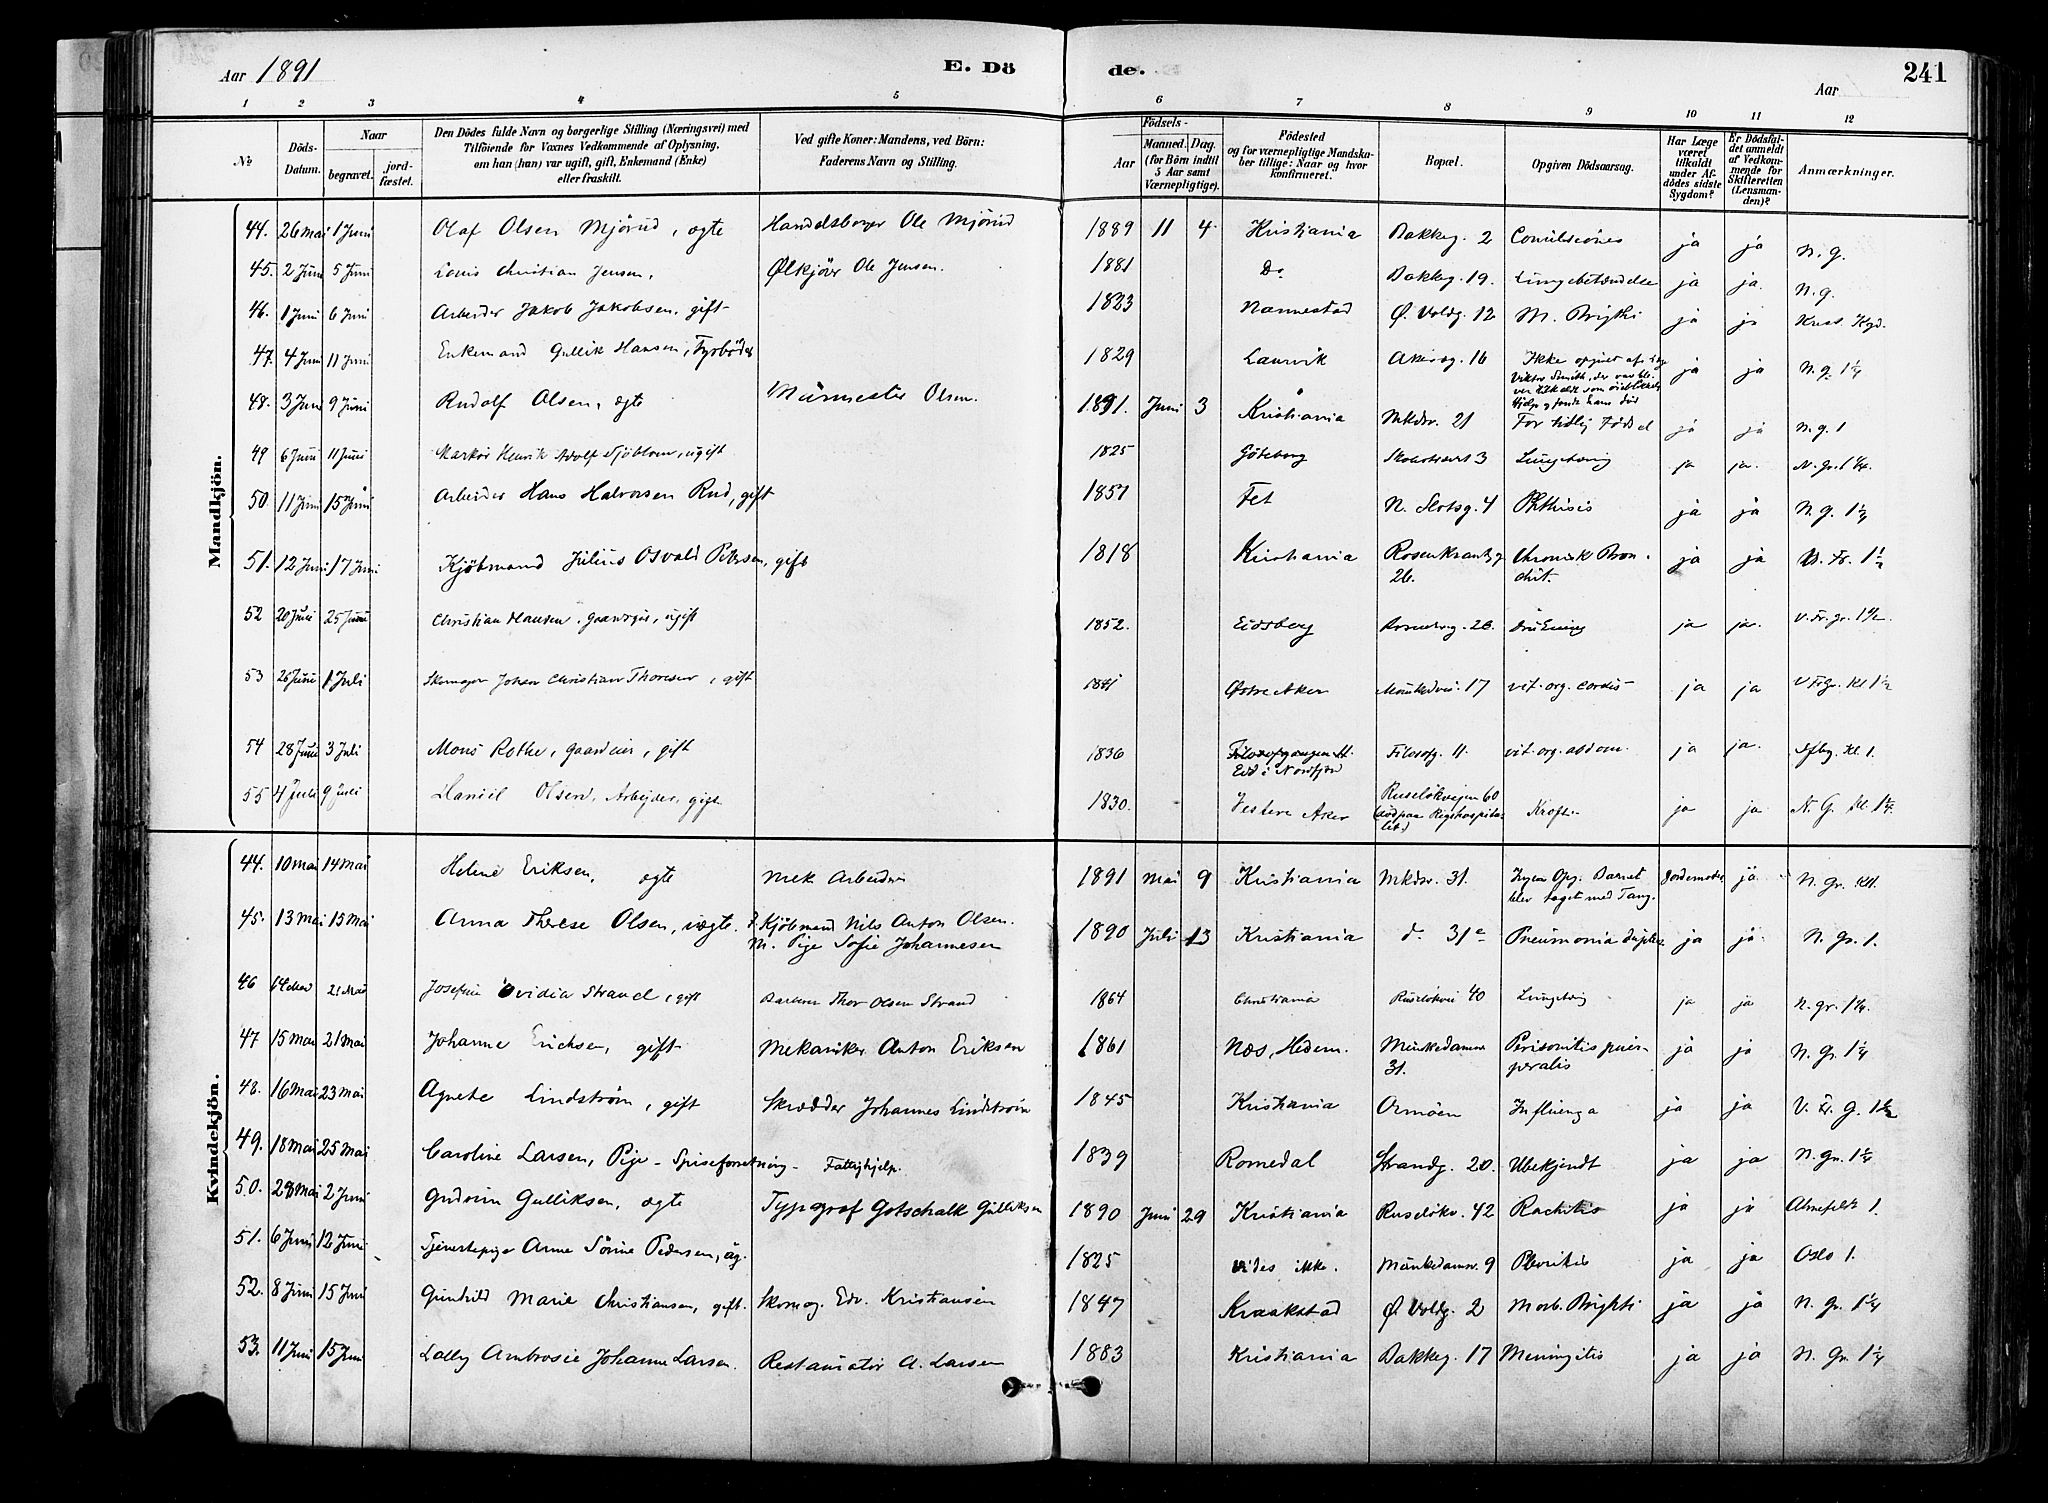 Aar 1891 E. Dö de. Aar 241
1 2 3 4 5 6 7 8 9 10 11 12
No Döds-Datum. Naar begravet. jord-fæstet. Den Dödes fulde Navn og borgerlige Stilling (Næringsvei) med Tilföiende for Voxnes Vedkommende af Oplysning, om han (hun) var ugift, gift, Enkemand (Enke) eller fraskilt. Ved gifte Koner: Mandens, ved Börn: Faderens Navn og Stilling. Födsels- Aar Maaned. Dag. (for Börn indtil 5 Aar samt Værnepligtige). Födested og for værnepligtige Mandskaber tillige: Naar og hvor konfirmeret. Bopæl. Opgiven Dödsaarsag. Har Læge været tilkaldt under Afdödes sidste Sygdom? Er Dödsfaldet anmeldt af Vedkommende for Skifteretten (Lensmanden)? Anmærkninger.
Mandkjön.
44. 26 Mai 1 Juni Olaf Olsen Mjörud, ægte Handelsborger Ole Mjörud 1889 11 4 Kristiania Bakkeg. 2 Convulsiones ja ja N. g.
45. 2 Juni 5 Juni Louis Christian Jensen, Ølkjörer Ole Jensen. 1881 Do Bakkeg. 19. Lungebetændelse ja ja. N. g.
46. 1 Juni 6 Juni Arbeider Jakob Jakobsen, gift 1823 Nannestad Ø. Voldg. 12 M. Brigthi ja ja
47. 4 Juni 11 Juni Enkemand Gullik Hansen, Fyrböder 1829 Laurvik Akersg. 16 Ikke opgivet af Viktor Smith, der var tilkaldt som Hjelp og fandt ham död ja ja N. g. 1 1/4
48. 3 Juni 9 Juni Rudolf Olsen, ægte Murmester Olsen. 1891. Juni 3 Kristiania Mkdsv. 21 For tidlig Födsel ja ja N. g. 1
49 6 Juni 11 Juni Markör Henrik Adolf Sjöblom, ugift 1825 Göteborg 3 ja ja. N. Gr. 1 1/4.
50. 11 Juni 15 Juni Arbeider Hans Halvorsen Rud, gift 1851 Fet N. Slotsg. 4 Phthisis ja ja N. g. 1 1/4
51. 12 Juni 17 Juni Kjöbmand Julius Osvald Petersen, gift 1818 Kristiania Rosenkrantzg 26. Chronisk Bronchit. ja ja V. Fr. 1 1/2
52 20 Juni 25 Juni Christian Hansen, Gaardsgut, ugift 1852. Eidsberg Rosenkrg. 26. Drukning ja ja. V. Fr. gr. 1 1/2.
53 26 Juni 1 Juli Skomager Johan Christian Thoresen, gift 1841 Østre Aker Munkedsvei. 17 vit. org. cordis ja ja V Fr Gr. Kl 1 1/2
54 28 Juni 3 Juli Mons Rothe, Gaardeier, gift 1836 Filosofgangen 11 Eid i Nordfjord Filosofg. 11. vit. org. abdom. ja ja. Kl. 1.
55 4 Juli 9 Juli Daniel Olsen, Arbeider, gift 1830. Vestre Aker Ruselökveien 60 (död paa Rigshospitalet) Kræft ja ja N. G. Kl. 1 1/4.
Kvindekjön.
44. 10 Mai 14 Mai Helene Eriksen, ægte Mek Arbeider 1891 Mai 9 Kristiania Mkdsv. 31. Ingen Opg. Barnet blev taget med Tang. Jordemoder ja N. Gr. Kl 1.
45. 13 Mai 15 Mai Anna Therese Olsen, uægte. F. Kjöbmand Nils Anton Olsen. M. Pige Sofie Johannesen 1890 Juli 13 Kristiania do 31 c Pneumonia duplex ja ja N. Gr. 1.
46 14 Mai 21 Mai Josefine Ovidia Strand, gift Thor Olsen Strand 1864 Christiania Ruselökvei 40 ja ja N. gr. 1 1/4.
47 15 Mai 21 Mai Johanne Erichsen, gift Mekaniker Anton Eriksen 1861 Næs, Hedem. Munkedamsv 31. Peritonitis puerperalis ja ja N. Gr. 1 1/4
48. 16 Mai 23 Mai Agnete Lindström, gift Skrædder Johannes Lindström 1845 Kristiania Ormöen Influenza ja ja V. Fr. G. 1 1/2
49. 18 Mai 25 Mai Caroline Larsen, Pige - Spiseforretning - Fattighjelp. 1839 Romedal Strandg. 20. Ubekjendt ja ja N. Gr. 1 1/4
50. 28 Mai 2 Juni Gudrun Gulliksen, ægte Typograf Gotschalk Gulliksen 1890 Juni 29 Kristiania Ruselökv. 42 Rachitis ja ja Almefeldt 1.
51. 6 Juni 12 Juni Tjenestepige Anne Sörine Pedersen, ug. 1825 vides ikke. Munkedamsv. 9 Plevritis ja ja Oslo 1.
52. 8 Juni 15 Juni Gunhild Marie Christiansen, gift. Skomag. Edv. Kristiansen 1847 Kraakstad Ø Voldg. 2 Morb. Brighti ja ja N. gr. 1 1/4
53. 11 Juni 15 Juni Lally Ambrosie Johanne Larsen. Restauratör A. Larsen 1883 Kristiania Bakkeg. 17 Meningitis ja ja N. Gr. 1 1/4